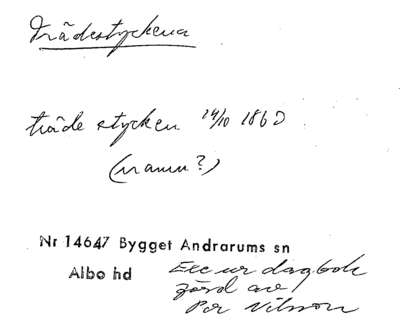 Trädestyckena
träde stycken 24/10 1860
(namn?)
Nr 14647 Bygget Andrarums sn
Albo hd
Exc ur dagbok
förd av
Per Nilsson